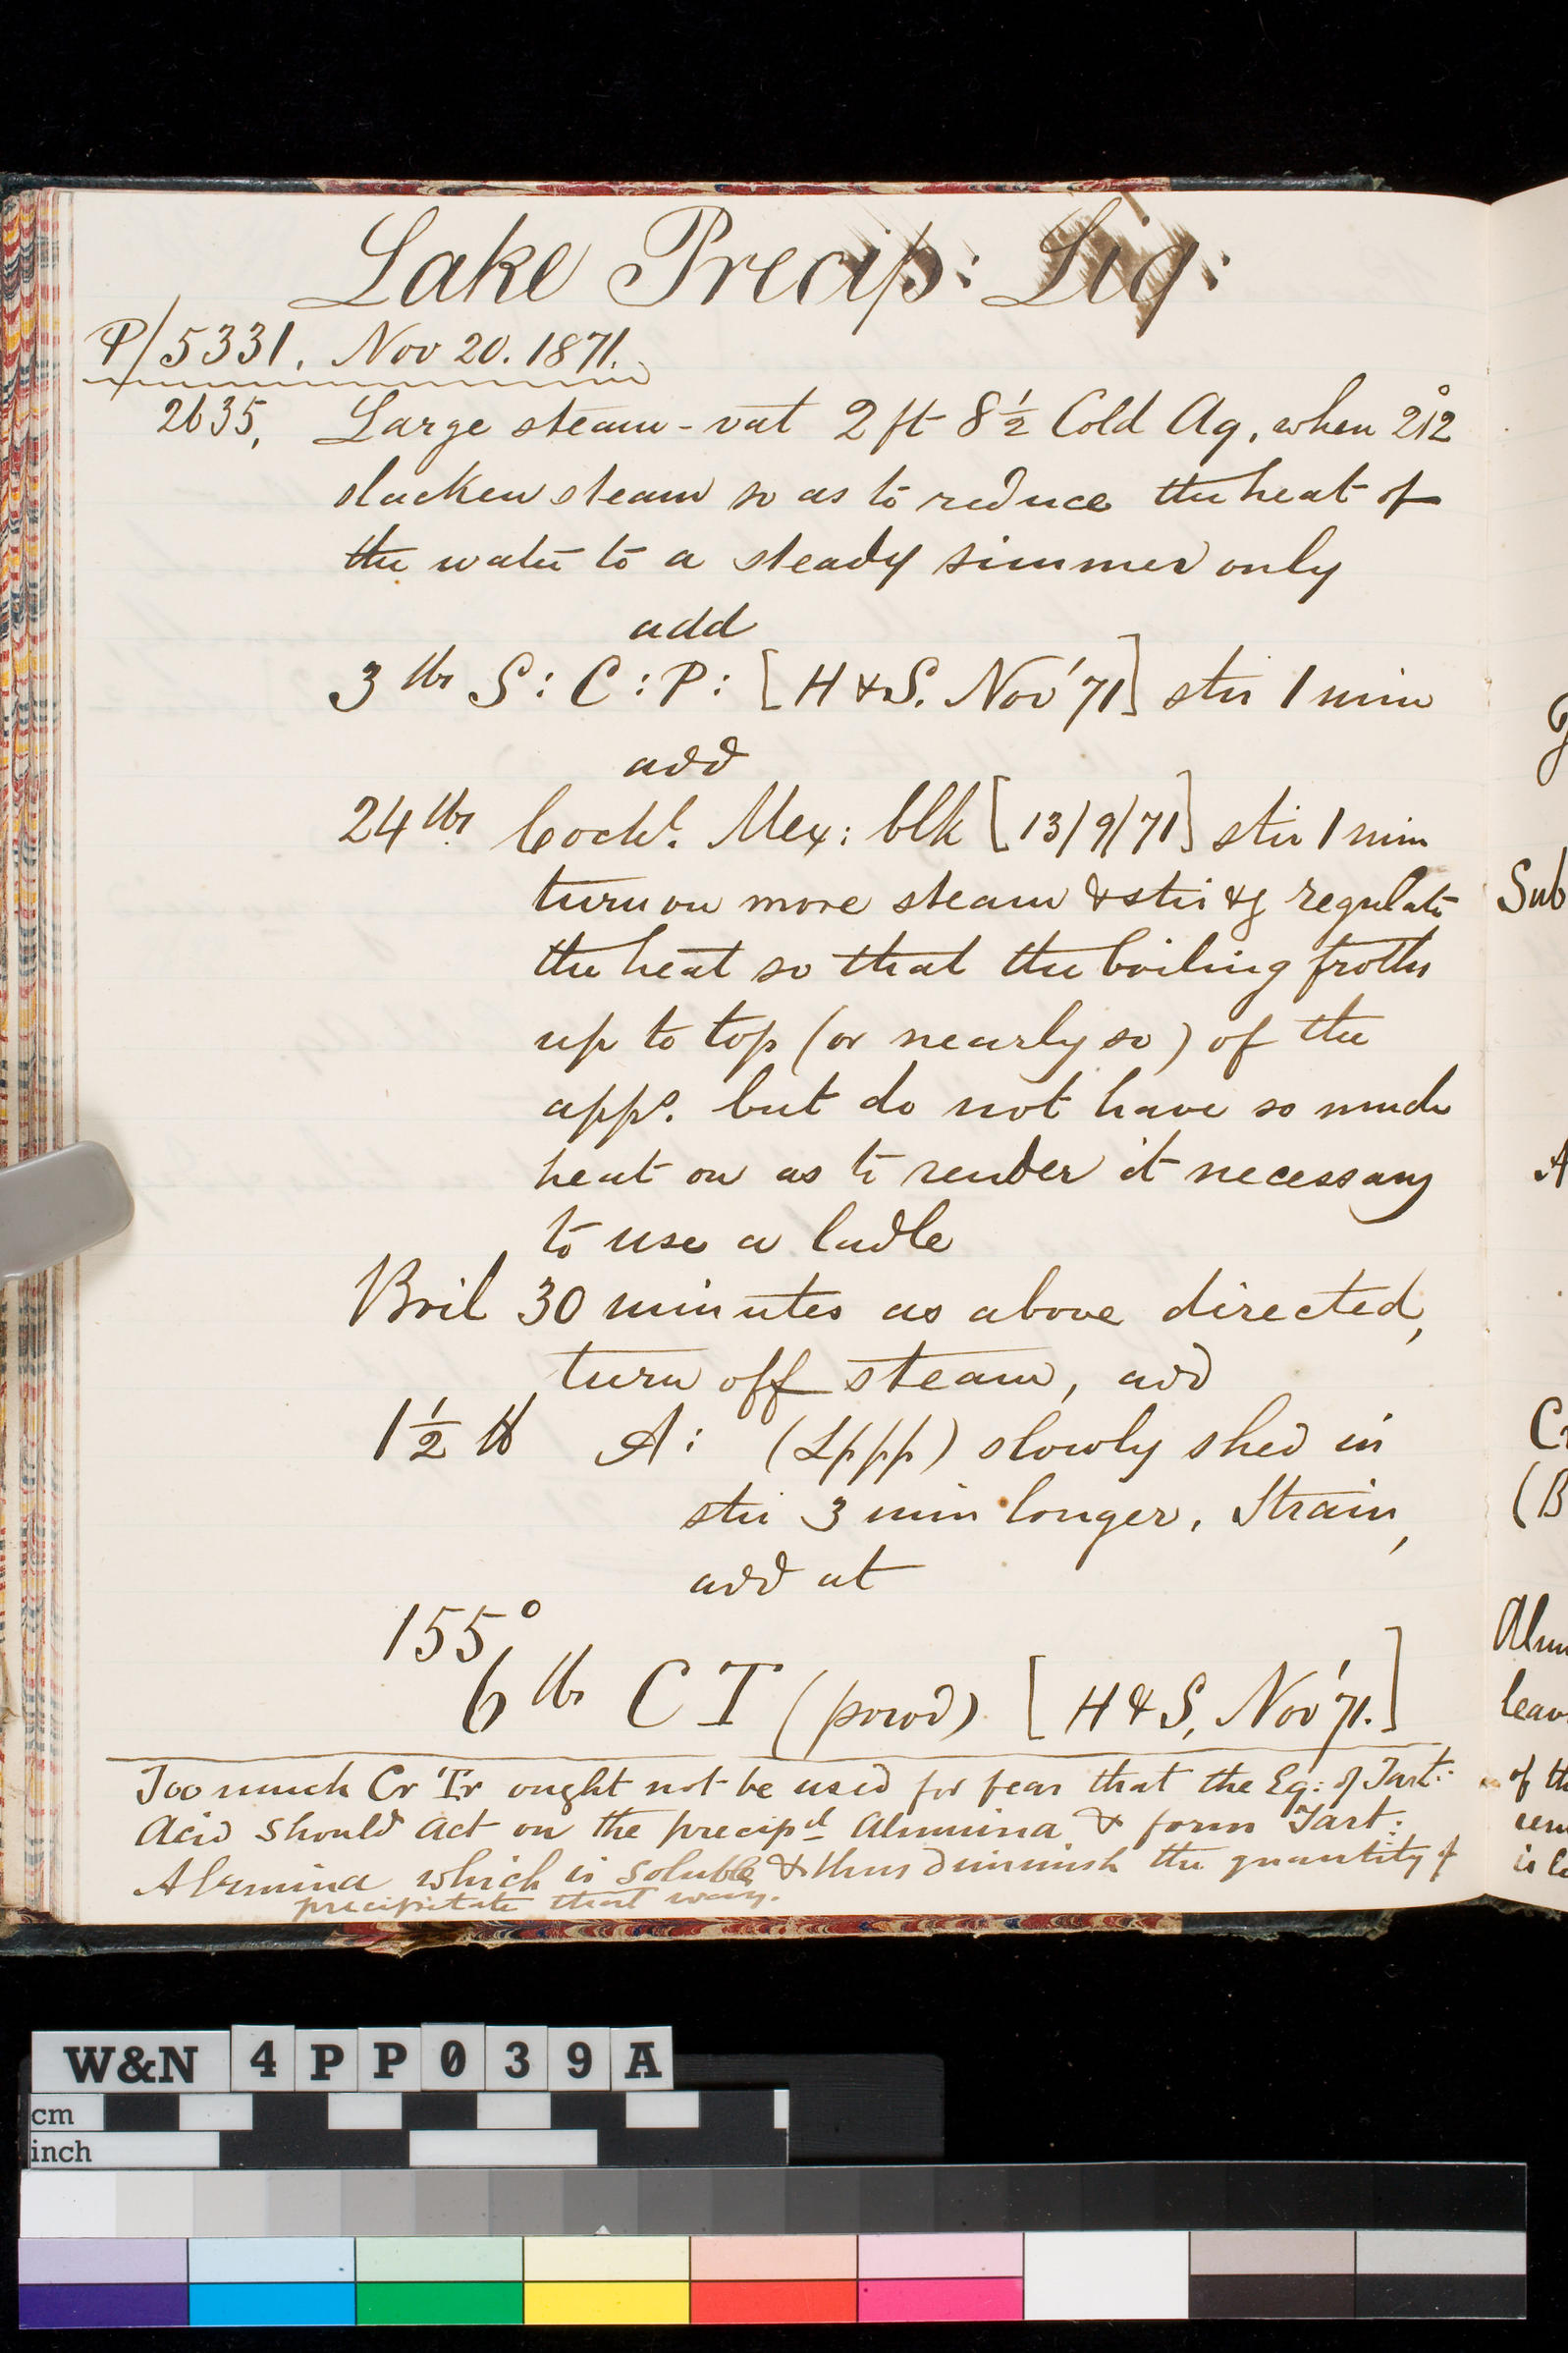 Lake Precip: Liq:
P/5331. Nov 20. 1871.
2635, Large steam-vat 2 ft 8 1/2 Cold Aq, when 212°
slacken steam so as to reduce the heat of
the water to a steady simmer only
add
3 lbs S: C: P: [H & S. Nov '71] stir 1 min
add
24 lbs Cochl. Mex: blk [13/9/71] stir 1 min
turn on more steam & stir &
regulate
the heat so that the boiling froths
up to top (or nearly so) of the
apps. but do not have so much
heat on as to render it necessary
to use a ladle
Boil 30 minutes as above directed,
turn off steam, add
1 1/2 lb A: (Lppp) slowly shed in
stir 3 min longer. Strain,
add at
155°
6 lbs C T (powd) [H & S, Nov '71.]
Too much Cr Tr ought not be used for fear that the Eq: of Tart:
Acid should act on the precipd Alumina & form Tart:
Alumina which is soluble & thus diminish the quantity of
precipitate that way.
G
Sub
A
(B
Alum
leav
of th
is
W&N 4PP039A
cm
inch